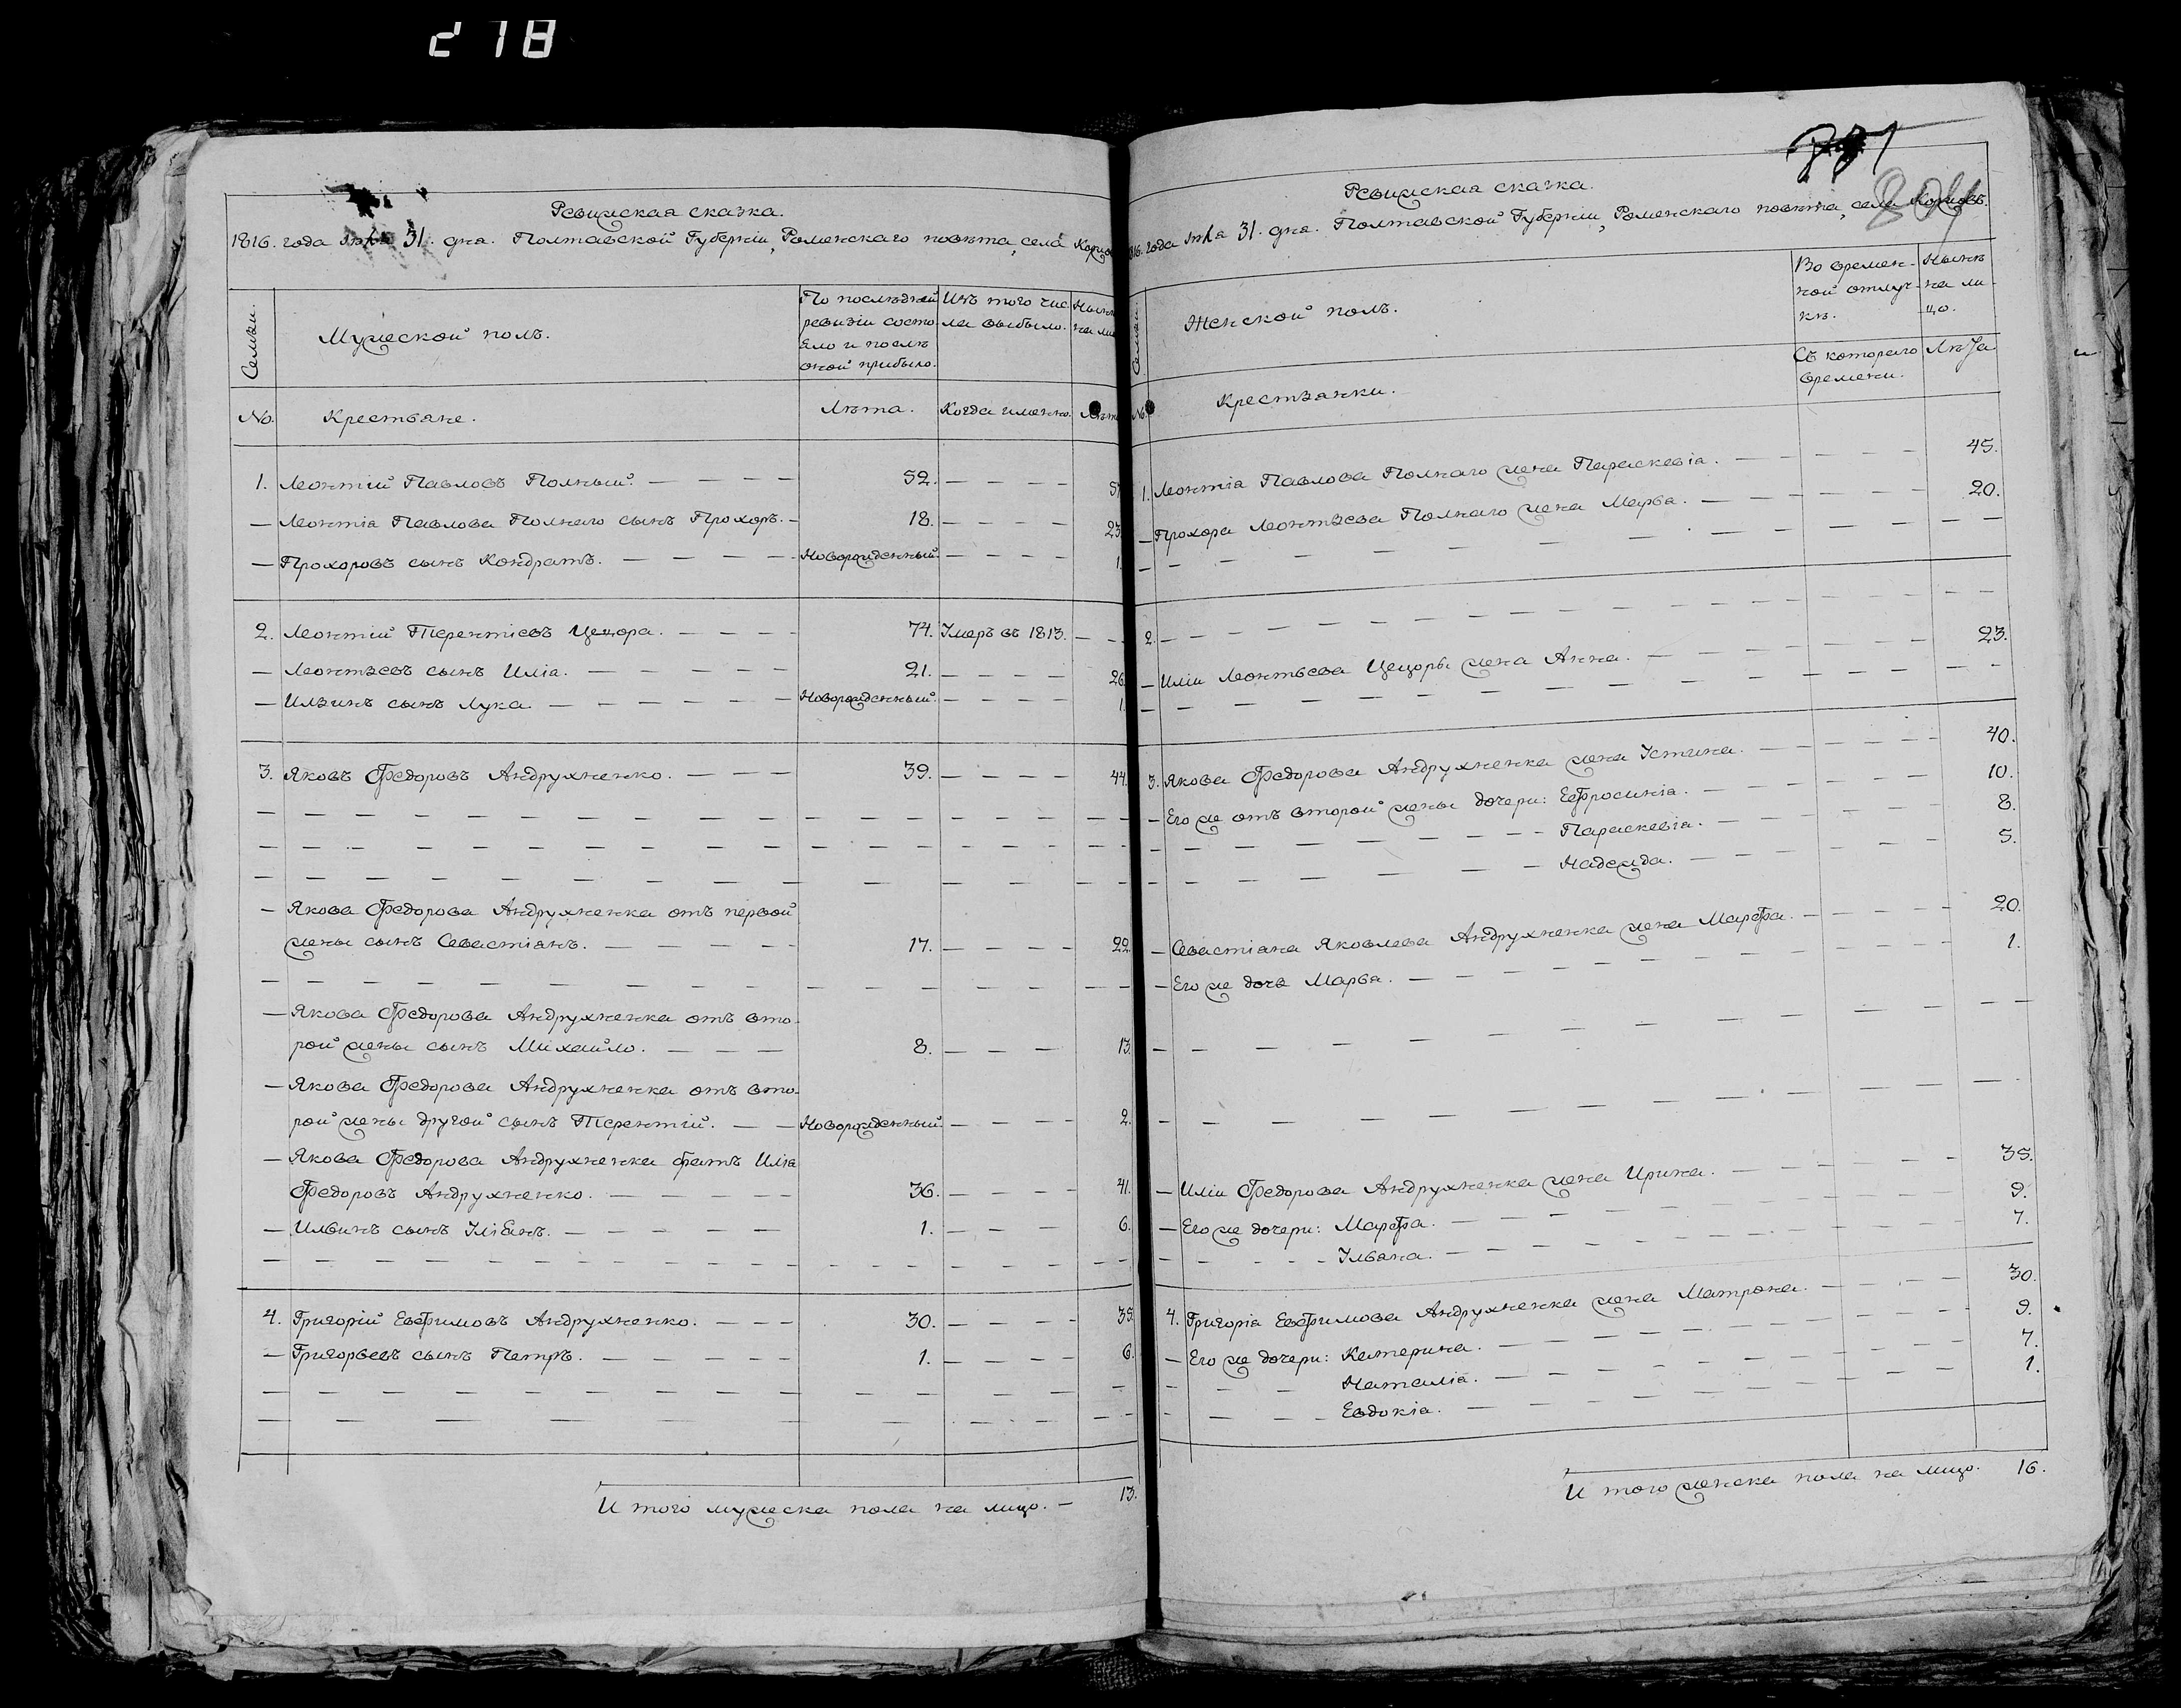 218
Ревижская сказка.
1816. года 31. дня. Полтавской Губернiи, Роменскаго повѣта, села
Семьи.
Мужеской полъ.
По послѣдней
ревизiи состо
яло и послѣ
оной прибыло.
Изъ того чис
ла выбыло.
№.
Крестьяне.
Лѣта.
Когда именно.
1. Леонтiй Павловъ Полный. — — — — 52. — — — —
— Леонтiя Павлова Полнаго сынъ Прохоръ. — 18. — — — — 23.
— Прохоровъ сынъ Кондратъ. — — — — Новорожденный. — — — — 1.
2. Леонтiй Терентiевъ Цецора. — — — — 74. Умеръ въ 1813. — —
— Леонтьевъ сынъ Илiя. — — — — — 21. — — — — 26.
— Ильинъ сынъ Лука. — — — — — — Новорожденный. — — — — 1.
3. Яковъ Федоровъ Андрухненко. — — — 39. — — — — 44.
— Якова Федорова Андрухненка отъ первой
жены сынъ Севастiянъ. — — — — — 17. — — — — 22.
— Якова Федорова Андрухненка отъ вто-
рой жены сынъ Михайло. — — — 8. — — — 13.
— Якова Федорова Андрухненка отъ вто-
рой жены другой сынъ Терентiй. — — Новорожденный. — — — — 2.
— Якова Федорова Андрухненка братъ Илiя
Федоровъ Андрухненко. — — — — — 36. — — — — 41.
— Ильинъ сынъ Улiянъ. — — — — — 1. — — — — 6.
4. Григорiй Евфимовъ Андрухненко. — — — 30. — — — — 35.
— Григорьевъ сынъ Петръ. — — — — — 1. — — — — 6.
И того мужеска пола на лицо. — 13.
Ревижская сказка.
года 31. дня. Полтавской Губернiи, Роменскаго повѣта, села
Женской полъ.
Во времен-
ной отлуч-
кѣ.
Нынѣ
на ли-
цо.
Съ котораго
времени.
Лѣта
№.
Крестьянки.
1. Леонтiя Павлова Полнаго жена Параскевiя. — — — — — 45.
— Прохора Леонтьева Полнаго жена Марья. — — — — — 20.
2. — — — — — — — — — —
— Илiи Леонтьева Цецоры жена Анна. — — — — — 23.
3. Якова Федорова Андрухненка жена Устина. — — — — — 40.
— Его же отъ второй жены дочери: Ефросинiя. — — — — — 10.
— — — Параскевiя. — — — — — 8.
— — — Надежда. — — — — — 5.
— Севастiяна Яковлева Андрухненка жена Марфа. — — — — — 20.
— Его же дочь Марья. — — — — — 1.
— Илiи Федорова Андрухненка жена Ирина. — — — — — 35.
— Его же дочери: Марфа. — — — — — 9.
— — — Ульяна. — — — — — 7.
4. Григорiя Евфимова Андрухненка жена Матрона. — — — — 30.
— Его же дочери: Катерина. — — — — — 9.
— — — Наталiя. — — — — — 7.
— — — Евдокiя. — — — — — 1.
И того женска пола на лицо. 16.